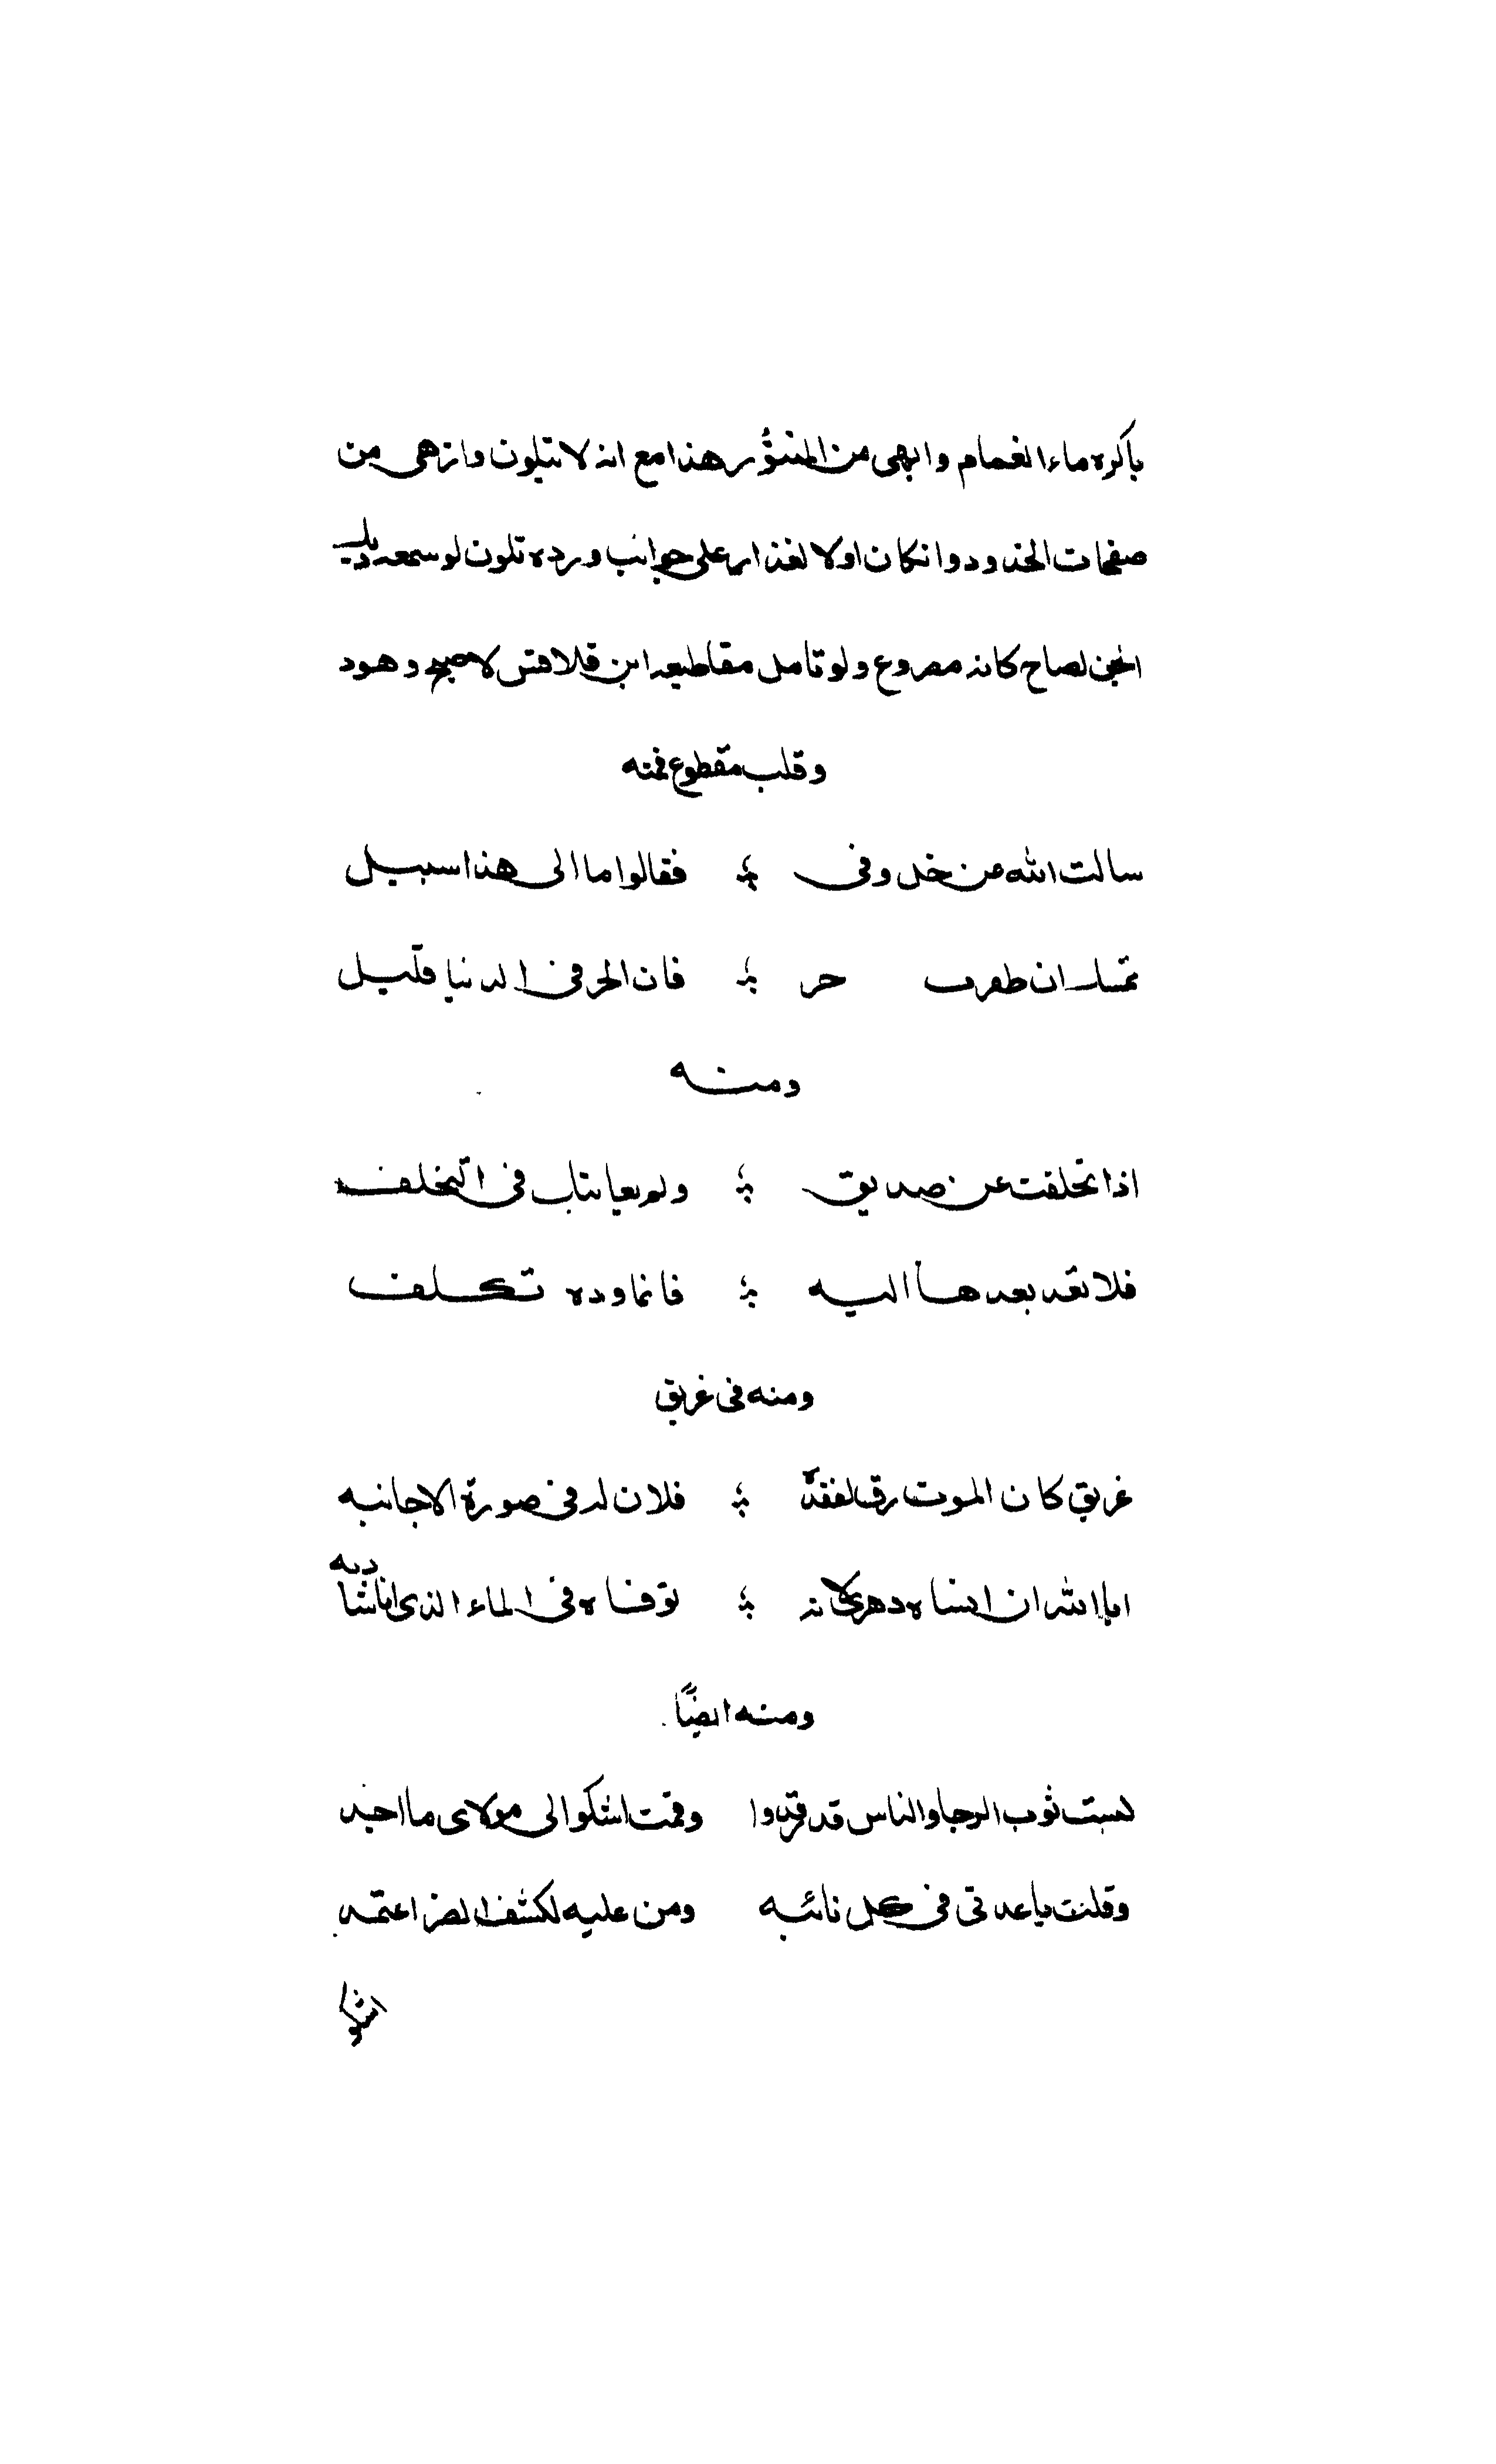 باكره ماء الغمام وابهى من المنثور هذا مع انه لا يتلون وازهى من
صفحات الخدود وان كان اولا لغذار على جوانب ورده تلون لو سمعه ديك
الجن لصاح كانه مصروع ولو تامل مقاطيعه ابن قلاقس لاصبح وهود
وقلب مقطوع فمنه
سالت الله من خل وفى ؛ فقالوا ما الى هذا سبيل
تمسك ان ظفرت حر ؛ فان الحر فى الدنيا قليل
ومنه
اذا تخلفت عن صديق ؛ ولم يعاتبك فى التخلف
فلا تعد بعدها اليه ؛ فانما وده تكلف
ومنه فى غريق
غريق كان الموت رق لفقده ؛ فلان له فى صورة الاجانبه
ابا الله ان انساه دهرى لانه ؛ توفاه فى الماء الذى انا شاربه
ومنه ايضًا
لبست ثوب الرجا والناس قد رقدوا وقمت اشكوا الى مولاى ما اجد
وقلت ياعدتى فى كل نائبه ومن عليه لكشف الضر اعتمد
اشكو